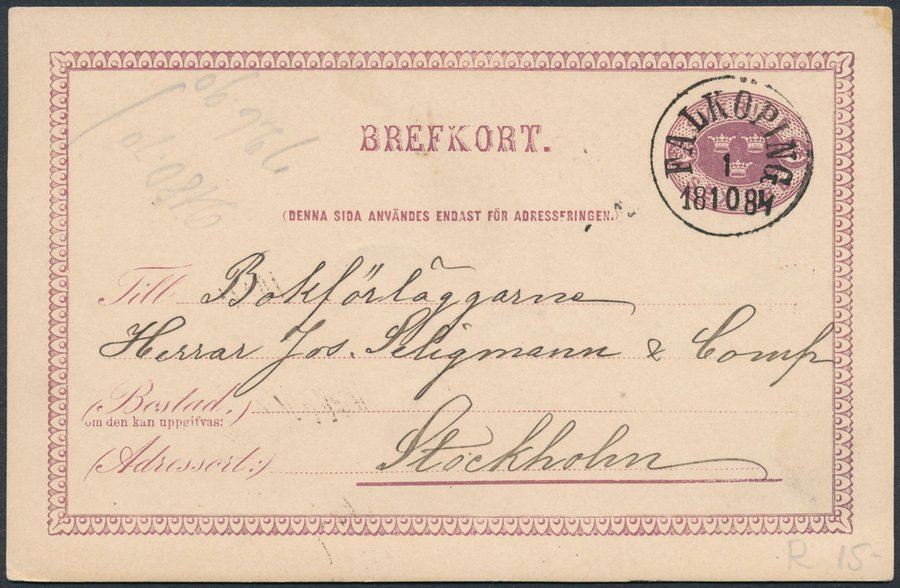 BREFKORT.
(DENNA SIDA ANVÄNDES ENDAST FÖR ADRESSERINGEN.)
FALKÖPING
1
18 10 84
Till Bokförläggarne
Herrar Jos. Seligmann & Comp
(Bostad,)
om den kan uppgifvas:
Stockholm
(Adressort:)
R 15-